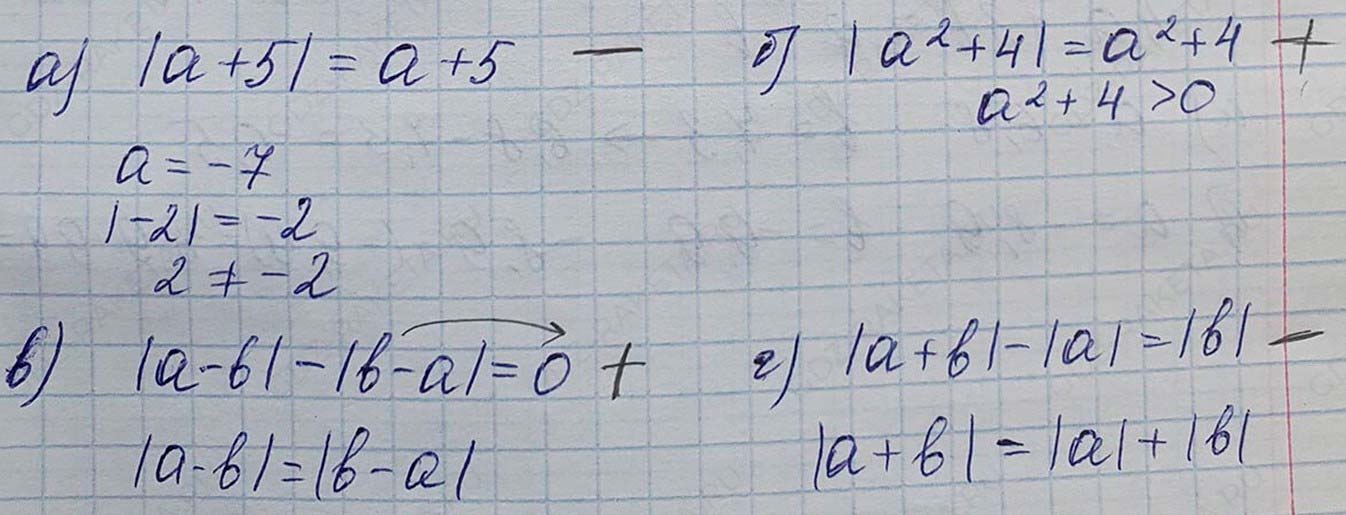 а) |a+5| = a+5 —
a = -7
|-2| = -2
2 ≠ -2
б) |a²+4| = a²+4 +
a²+4 >0
в) |a-b| - |b-a| = 0 +
|a-b| = |b-a|
г) |a+b| - |a| = |b| —
|a+b| = |a| + |b|